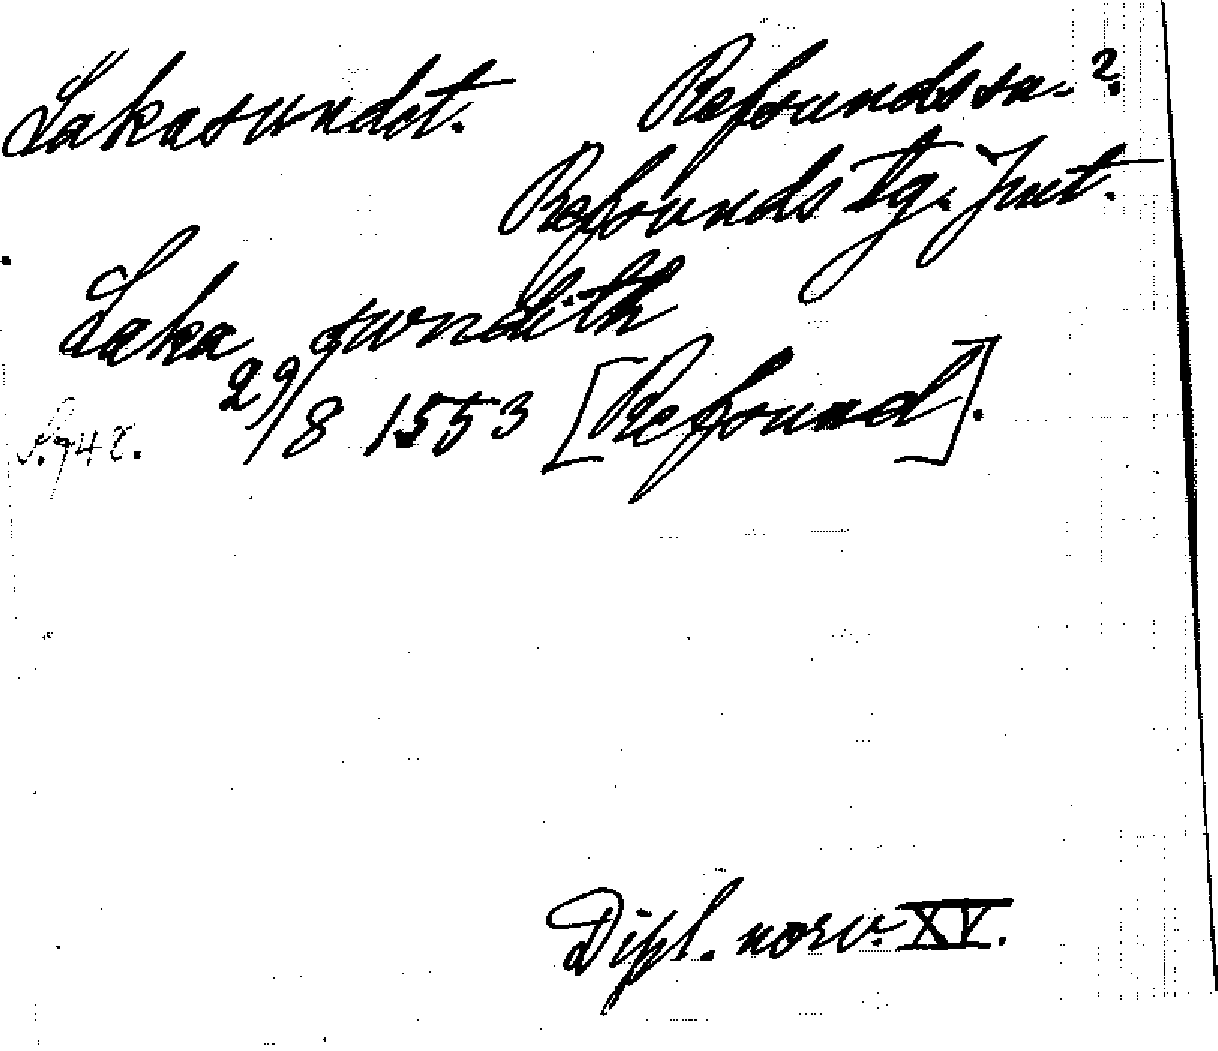 Lakasundet. Refsundssn.?
Refsunds tg. Jmt.
Laka sundith
29/8 1553 [Refsund].
S. 742.
Dipl. norv. XV.